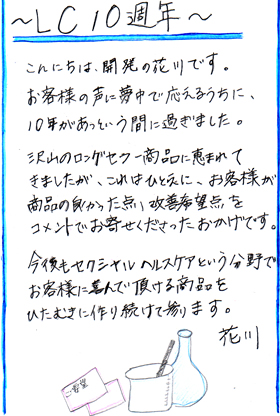 ～LC10週年～
こんにちは、開発の花川です。
お客様の声に夢中で応えるうちに、
10年があっという間に過ぎました。
沢山のロングセラー商品に恵まれて
きましたが、これはひとえに、お客様が
商品の良かった点、改善希望点を
コメントでお寄せくださったおかげです。
今後もセクシャルヘルスケアという分野で
お客様に喜んで頂ける商品を
ひたむきに作り続けて参ります。
花川